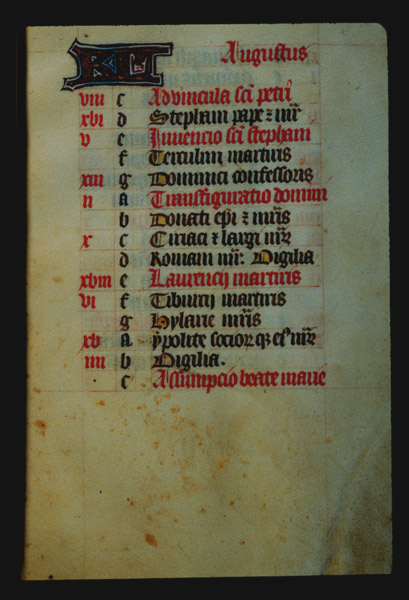 KL Augustus
viii c Advincula sci petri
xvi d Stephani pape z mr
v e Invencio sci stephani
f Terculini martiris
xiii g Dominici confessoris
ii a Transfiguratio domini
b Donati epi z mris
x c Ciriaci z largi mr
d Romani mr. Vigilia
xviii e Laurencij martiris
vi f Tiburcij martiris
g hylarie mris
xv a ypolite socior
iiii b Vigilia.
c Assumpcio beate marie